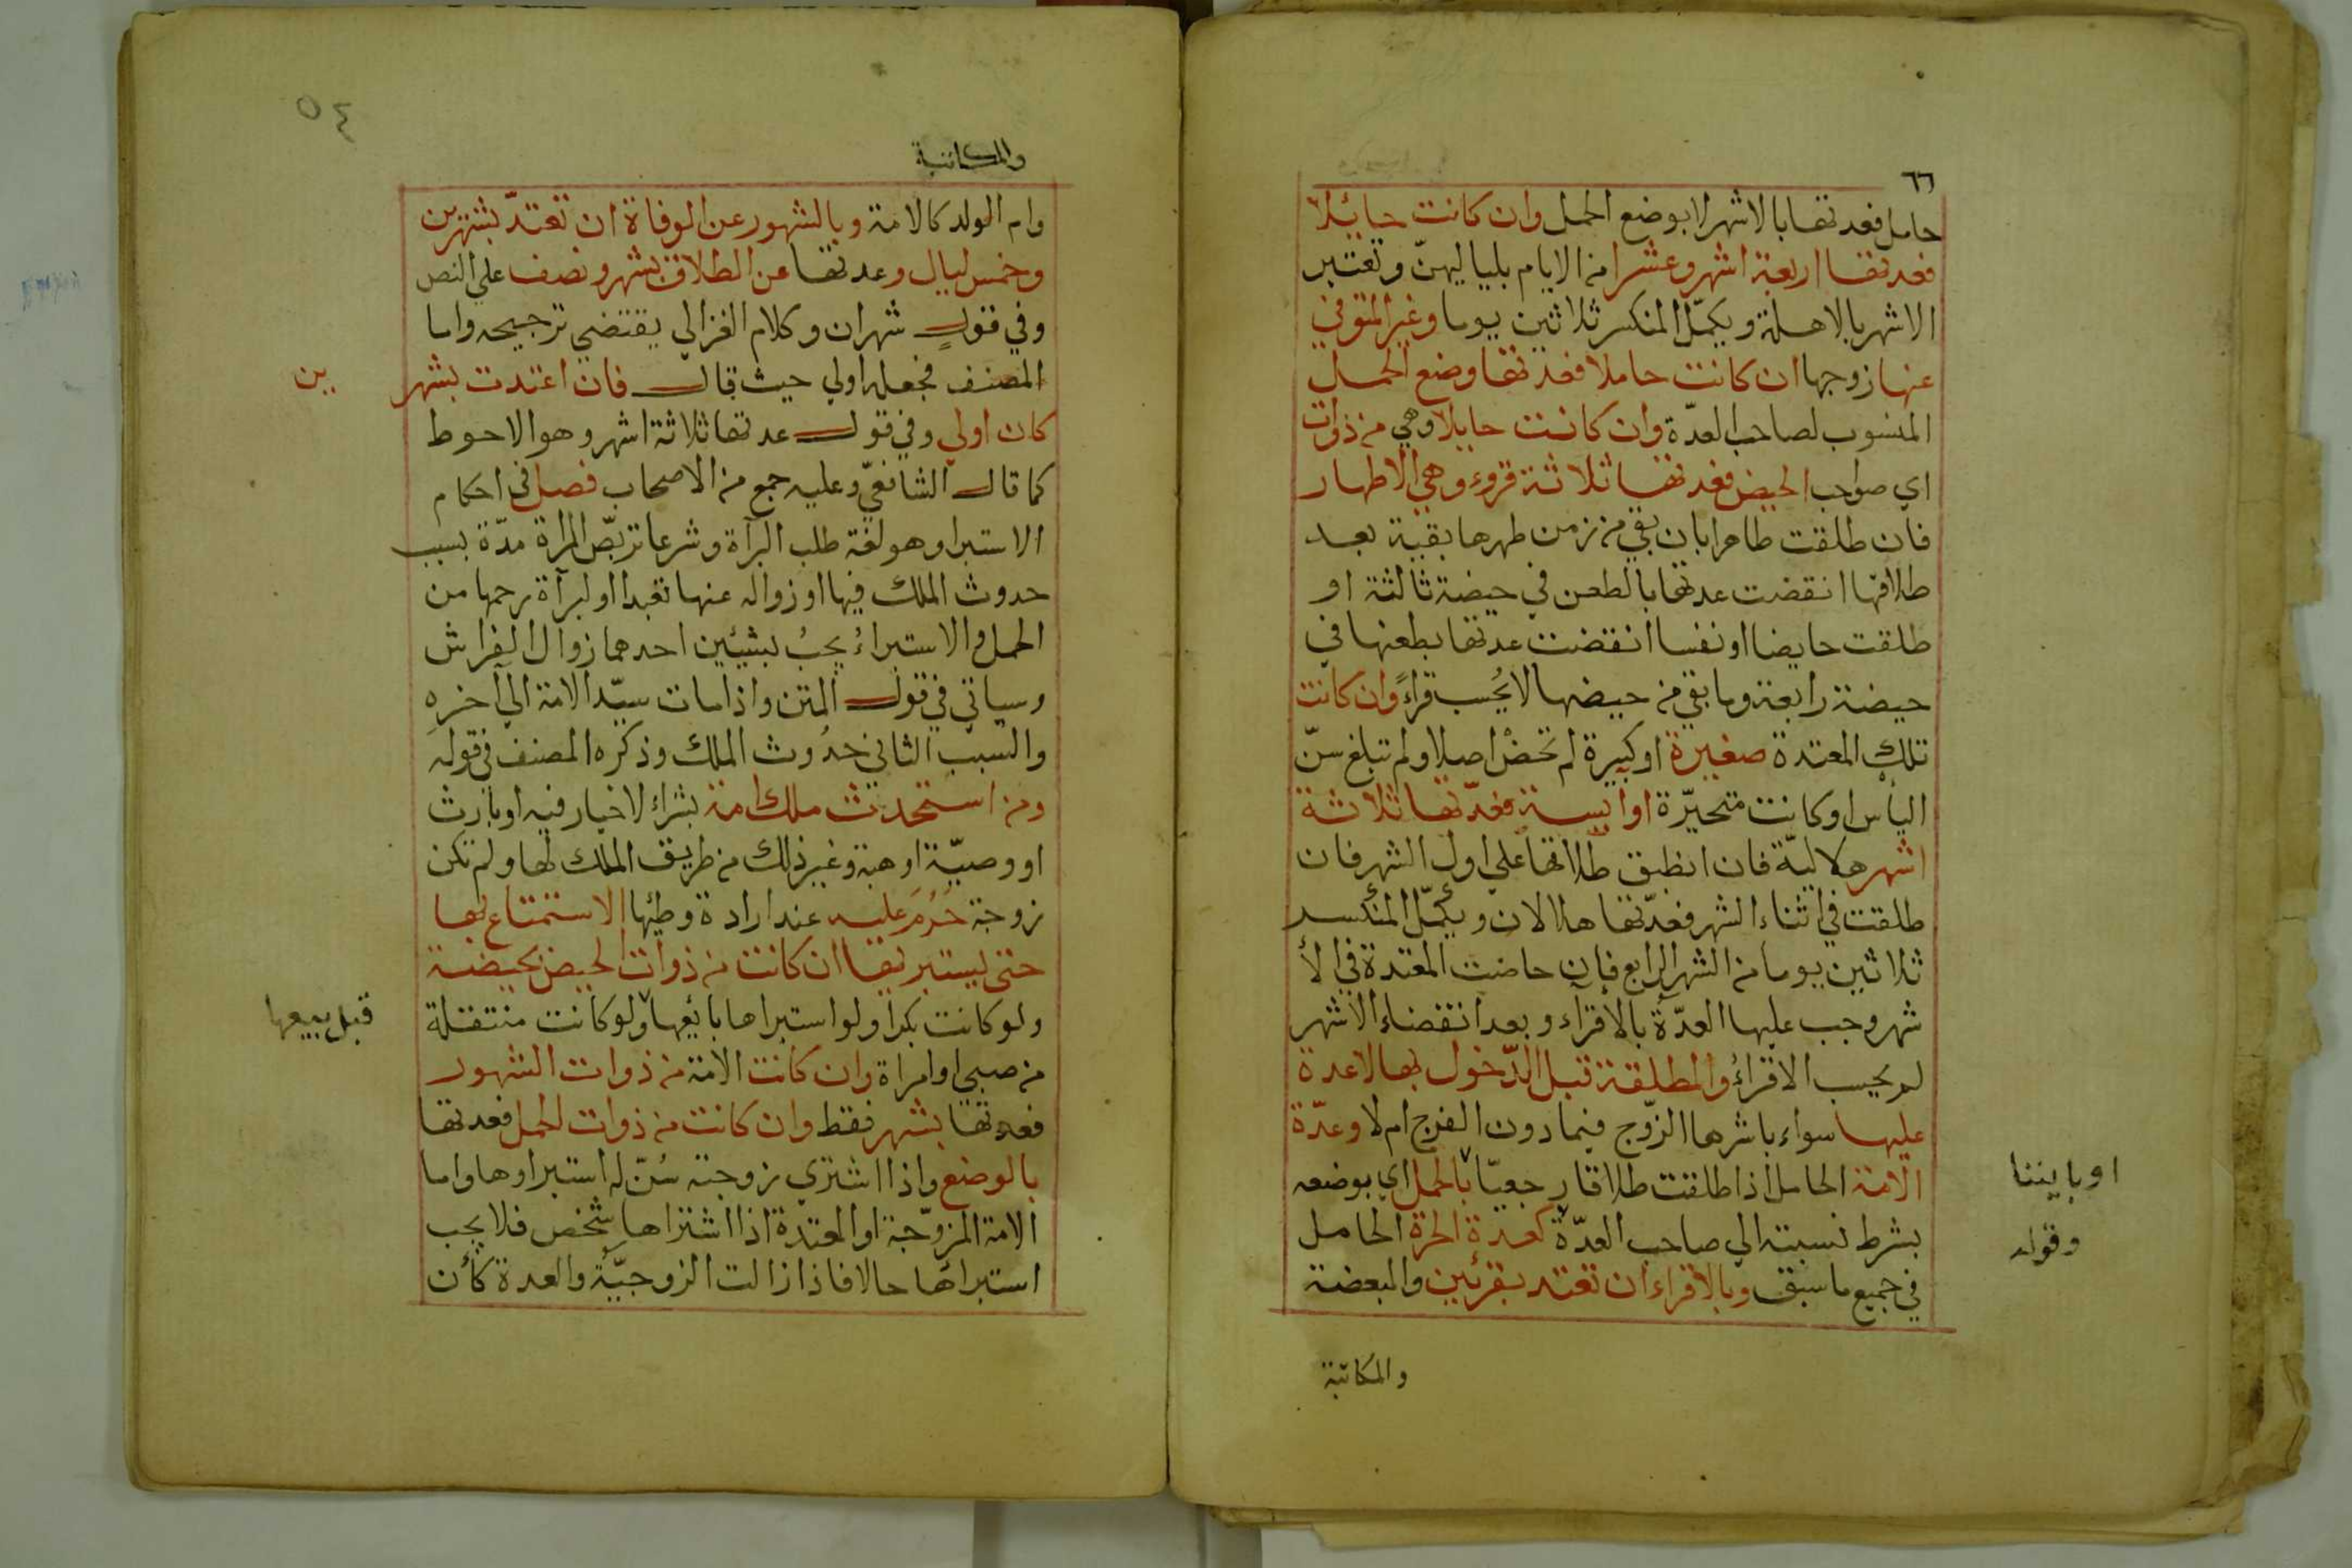 ٦٦
حامل فعدتها بالاشهر لا بوضع الحمل وان كانت حائلا
فعدتها اربعة اشهر وعشرا من الايام بلياليهنّ وتعتبر
الاشهر بالاهلة ويكمّل المنكسر ثلاثين يوما وغير المتوفي
عنها زوجها ان كانت حاملا فعدتها وضع الحمل
المنسوب لصاحب العدّة وان كانت حايلا وهي من ذوات
اي صواحب الحيض فعدتها ثلاثة قروء وهي الاطهار
فان طلقت طاهرا بان بقي من زمن طهرها بقية بعد
طلاقها انقضت عدتها بالطعن في حيضة ثالثة او
طلقت حايضا او نفسا انقضت عدتها بطعنها في
حيضة رابعة وما بقي من حيضها لا يُحسب قراءً وان كانت
تلك المعتدة صغيرة او كبيرة لم تحضْ اصلا ولم تبلغ سنّ
الياس او كانت متحيّرة او ايسة فعدّتها ثلاثة
اشهر هلاليّة فان انطبق طلاقها علي اول الشهر فان
طلقت في اثناء الشهر فعدّتها هلالان ويكمّل المنكسر
ثلاثين يوما من الشهر الرابع فان حاضت المعتدة في الأ
شهر وجب عليها العدّة بالاقراء وبعد انقضاء الاشهر
لم يحسب الاقراءُ والمطلقة قبل الدّخول بها لا عدة
عليها سواء باشرها الزوّج فيما دون الفرج ام لا وعدّة
الامة الحامل اذا طلقت طلاقا رجعيّا بالحمل اي بوضعه
او باينا
بشرط نسبته الي صاحب العدّة كعدة الحرة الحامل
وقوله
في جميع ما سبق وبالاقراء ان تعتد بقرئين والمبعضة
والمكاتبة
٥٤
والمكاتبة
وام الولد كالامة وبالشهور عن الوفاة ان تعتدّ بشهرين
وخمس ليال وعدتها عن الطلاق بشهر ونصف علي النص
وفي قولٍ شهران وكلام الغزالي يقتضي ترجيحه واما
المصنف فجعله اولي حيث قال فان اعتدت بشهر
ين
كان اولي وفي قول عدتها ثلاثة اشهر وهو الاحوط
كما قال الشافعيّ وعليه جمع من الاصحاب فصل في احكام
الاستبرا وهو لغة طلب البرآة وشرعا تربّص المراة مدّة بسبب
حدوث الملك فيها او زواله عنها تعبدا او لبرآة رحمها من
الحمل والاستبراءُ يجبُ بشيئين احدهما زوال الفراش
وسياتي في قول المتن واذا مات سيّد الامة الي آخرهِ
والسبب الثاني حدُوث الملك وذكره المصنف في قوله
ومن استحدث ملك امة بشراء لا خيار فيه او بارث
او وصيّة او هبة وغير ذلك من طريق الملك لها ولم تكن
زوجة حَرُمَ عليه عند ارادة وطئها الاستمتاع بها
حتى يستبريها ان كانت من ذوات الحيض بحيضة
ولو كانت بكرا ولو استبراها بائعها ولو كانت منتقلة
قبل بيعها
من صبي او امراة وان كانت الامة من ذوات الشهور
فعدتها بشهر فقط وان كانت من ذوات الحمل فعدتها
بالوضع واذا اشتري زوجته سُنّ له استبراوها واما
الامة المزوّجة او المعتدة اذا اشتراها شخص فلا يجب
استبراؤها حالا فاذا زالت الزوجيّة والعدة كأن